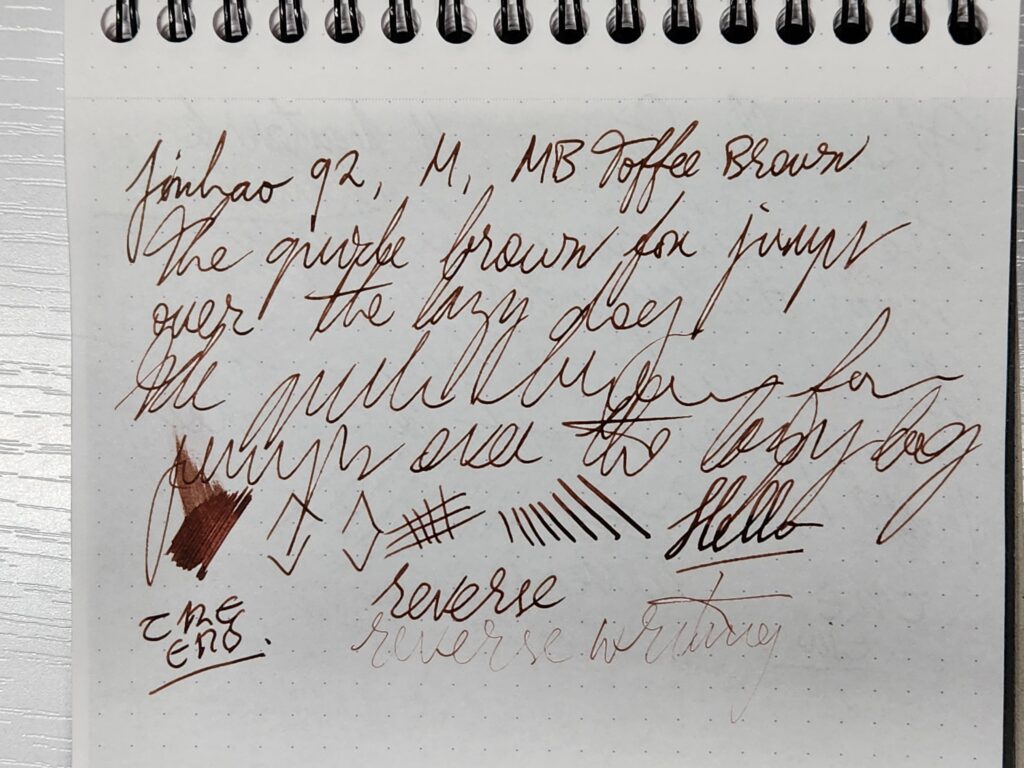 Jinhao 92, M, MB Toffee Brown
The quick brown fox jumps
over the lazy dog
the quick brown fox
jumps over the lazy dog
Hello
reverse
reverse writing
THE
END.